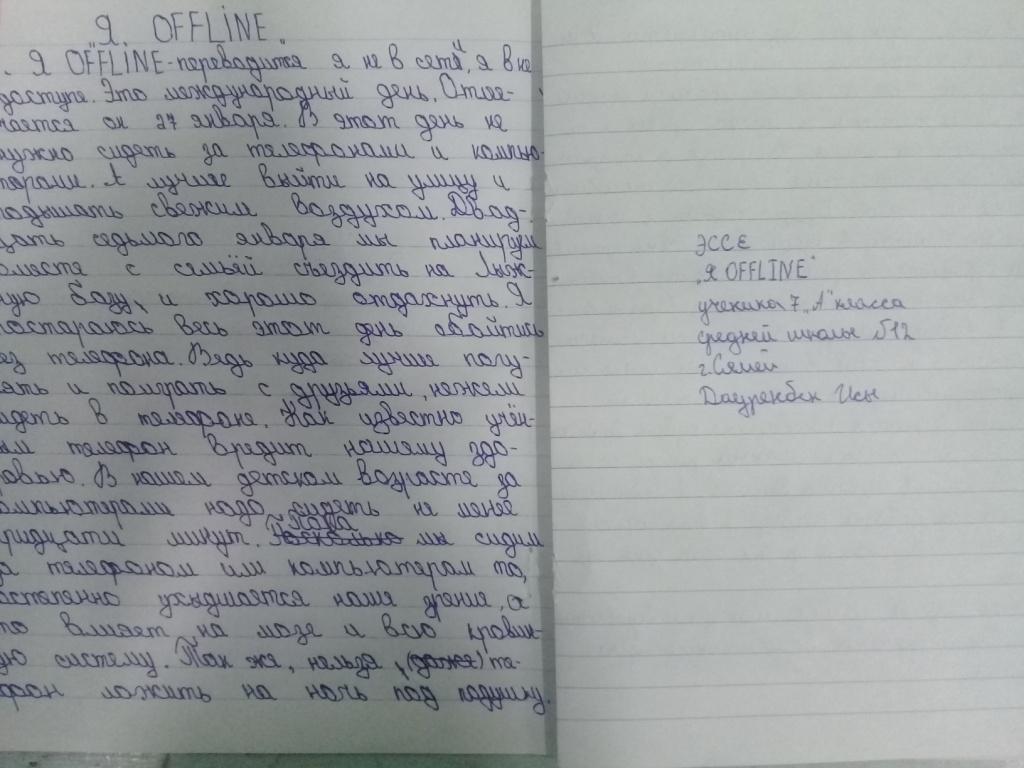 "Я OFFLINE"
"Я OFFLINE-переводится я не в сети, я вне
доступа. Это международный день. Отме-
чается он 27 января. В этот день не
нужно сидеть за телефонами и компью-
терами. А лучше выйти на улицу и
подышать свежим воздухом. Двад-
цать седьмого января мы планируем
вместе с семьёй съездить на лыж-
ную базу, и хорошо отдохнуть. Я
постараюсь весь этот день обойтись
ез телефона. Ведь куда лучше погу-
лять и поиграть с друзьями, нежели
идеть в телефоне. Как известно учён-
ым телефон вредит нашему здо-
ровью. В нашем детском возрасте за
омпьютерами надо сидеть не менее
тридцати минут. Пока мы сидим
за телефоном или компьютером то,
остепенно ухудшается наше зрение, а
то влияет на мозг и всю кровян-
ую систему. Так же, нельзя (даже) те-
фон ложить на ночь под подушку.
ЭССЕ
"Я OFFLINE"
ученика 7 "А" класса
средней школы №12
г.Семей
Дауренбек Исы